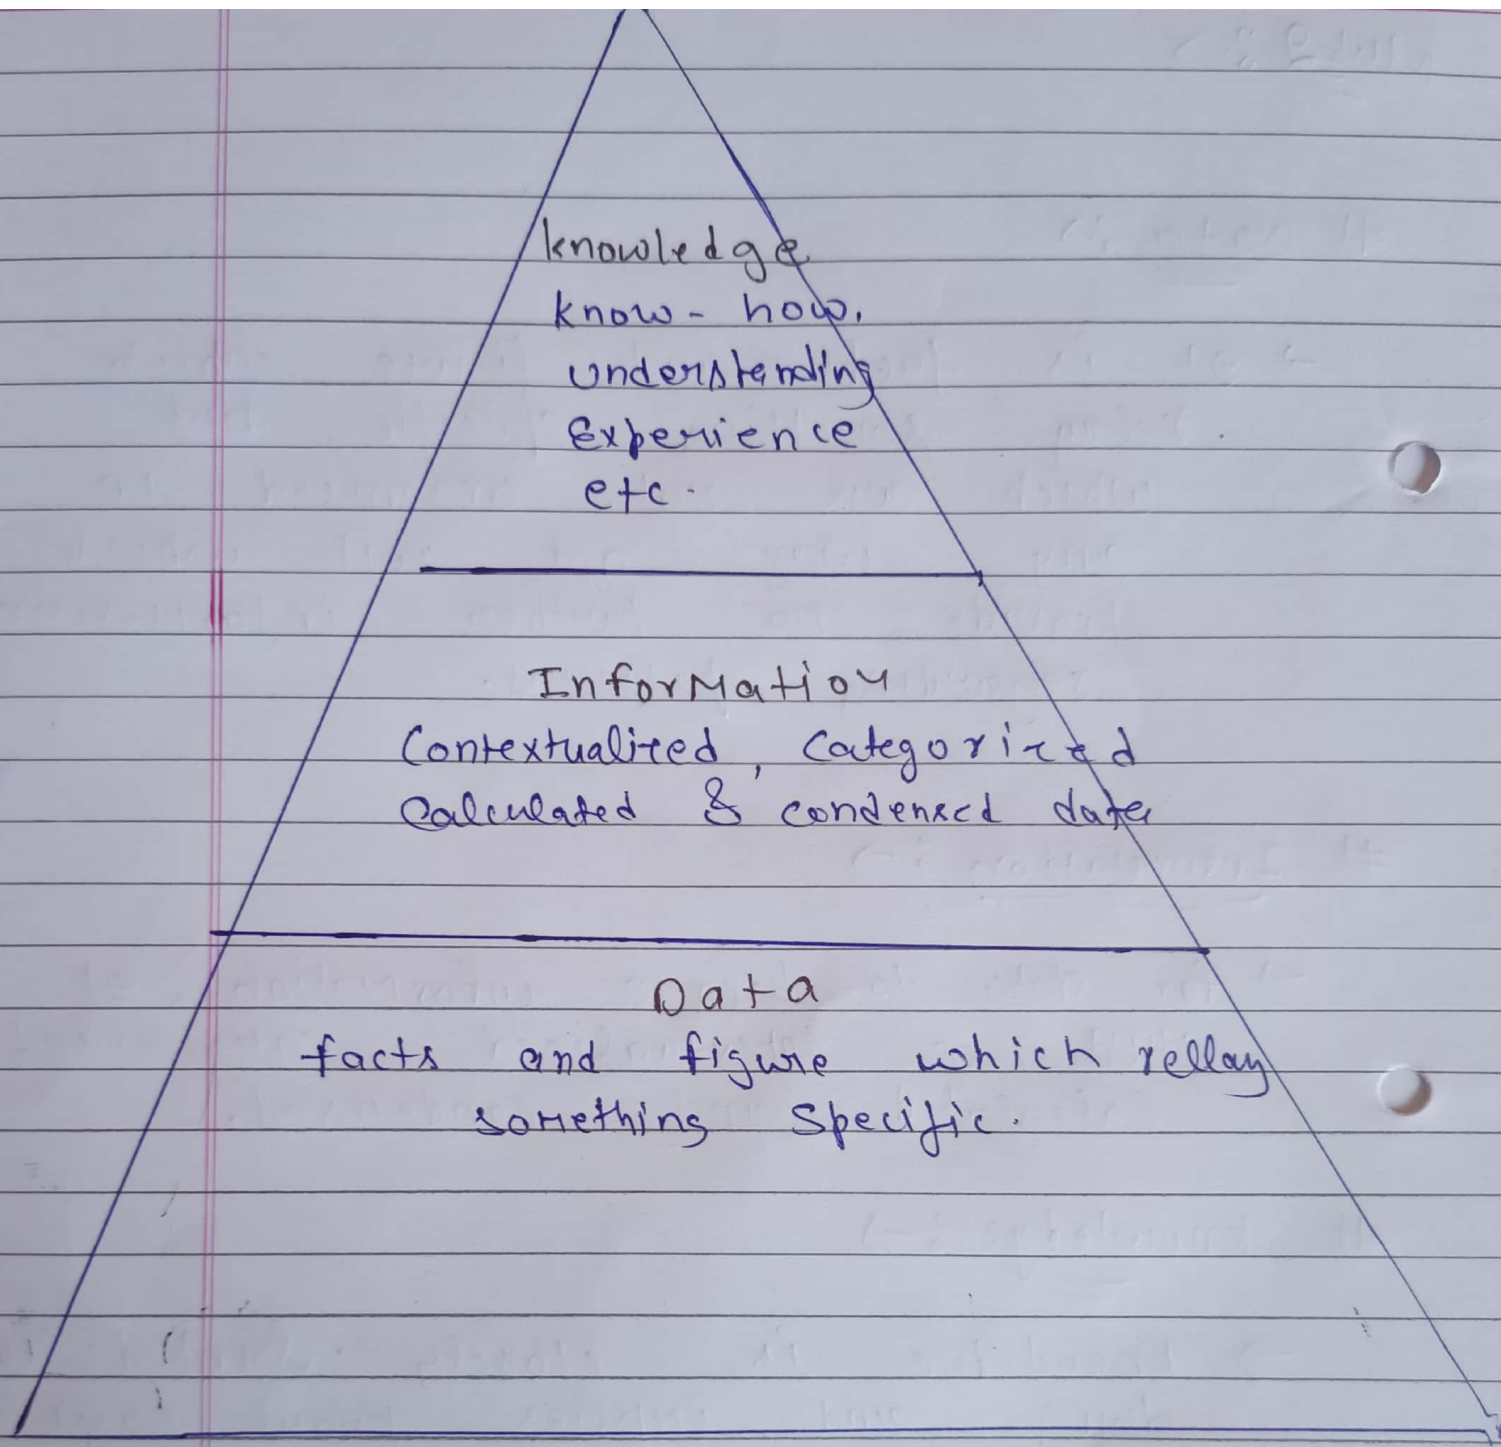 knowledge
know - how,
understanding
Experience
etc.
Information
Contextualized, Categorized
Calculated & condensed data
Data
facts and figure which rellay
something specific.